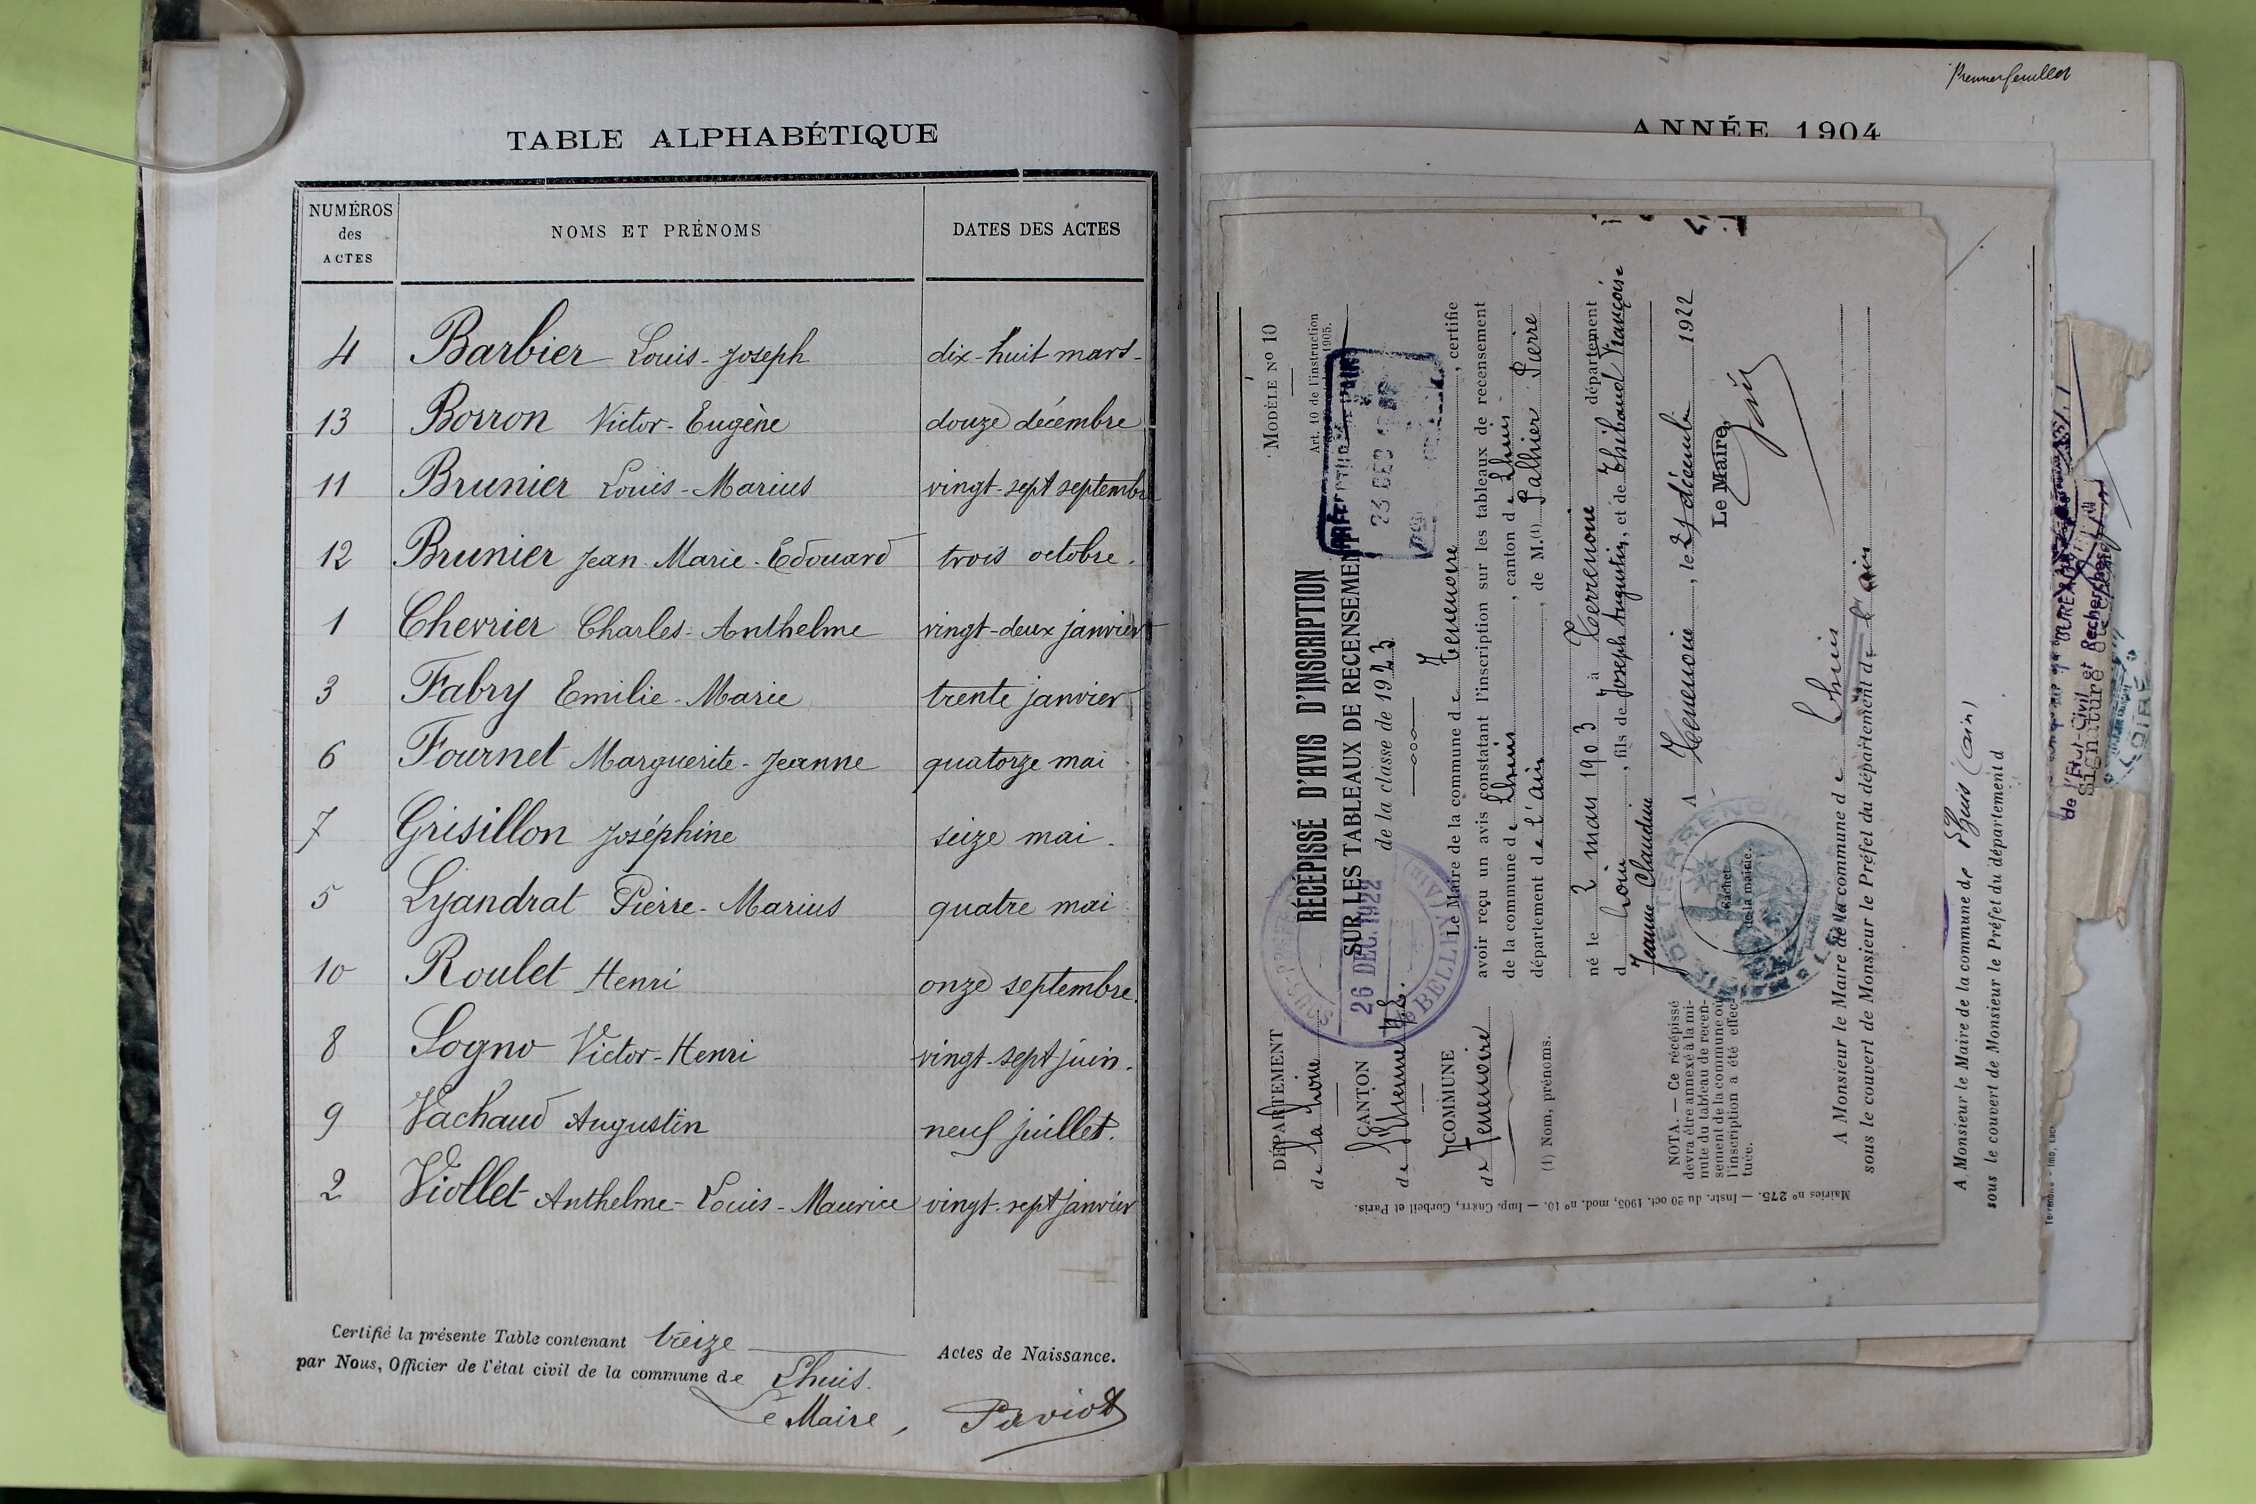 TABLE ALPHABÉTIQUE
NUMÉROS des ACTES
NOMS ET PRÉNOMS
DATES DES ACTES
4 Barbier Louis-Joseph dix-huit mars-
13 Borron Victor-Eugène douze décembre
11 Brunier Louis-Marius vingt-sept septembre
12 Brunier Jean-Marie-Edouard trois octobre.
1 Chevrier Charles-Anthelme vingt-deux janvier
3 Fabry Emilie-Marie trente janvier
6 Fournet Marguerite-Jeanne quatorze mai
7 Grisillon Joséphine seize mai.
5 Lyandrat Pierre-Marius quatre mai
10 Roulet Henri onze septembre.
8 Sogno Victor-Henri vingt-sept juin.
9 Vachaud Augustin neuf juillet.
2 Viollet Anthelme-Louis-Maurice vingt-sept janvier
Certifié la présente Table contenant treize Actes de Naissance.
par Nous, Officier de l'état civil de la commune de Lhuis.
Le Maire, Paviot
Premier feuillet
ANNÉE 1904
MODÈLE No 10
Art. 10 de l'instruction
1905.
DÉPARTEMENT
de la Loire
CANTON
de St Etienne
COMMUNE
de Terrenoire
(1) Nom, prénoms.
NOTA. — Ce récépissé
devra être annexé à la mi-
nute du tableau de recen-
sement de la commune où
l'inscription a été effec-
tuée.
RÉCÉPISSÉ D'AVIS D'INSCRIPTION
SUR LES TABLEAUX DE RECENSEMENT
de la classe de 1923
26 DEC. 1922
BELLEY (AIN)
23 DEC
Le Maire de la commune de Terrenoire, certifie
avoir reçu un avis constatant l'inscription sur les tableaux de recensement
de la commune de Lhuis, canton de Lhuis
département de l'ain, de M.(1) Palhier Pierre
né le 2 mars 1903 à Terrenoire département
d Loire, fils de Joseph Augustin, et de Thibaud Françoise
Jeanne Claudine
A Terrenoire, le 23 décembre 1922
Le Maire,
Cachet
de la mairie.
A Monsieur le Maire de la commune de Lhuis
sous le couvert de Monsieur le Préfet du département de l'ain
Mairies no 275. — Instr. du 20 oct. 1905, mod. no 10. — Imp. Crété, Corbeil et Paris.
A Monsieur le Maire de la commune de Lhuis (ain)
sous le couvert de Monsieur le Préfet du département d
de l'Etat-Civil et Recherches
Signature
LOIRE